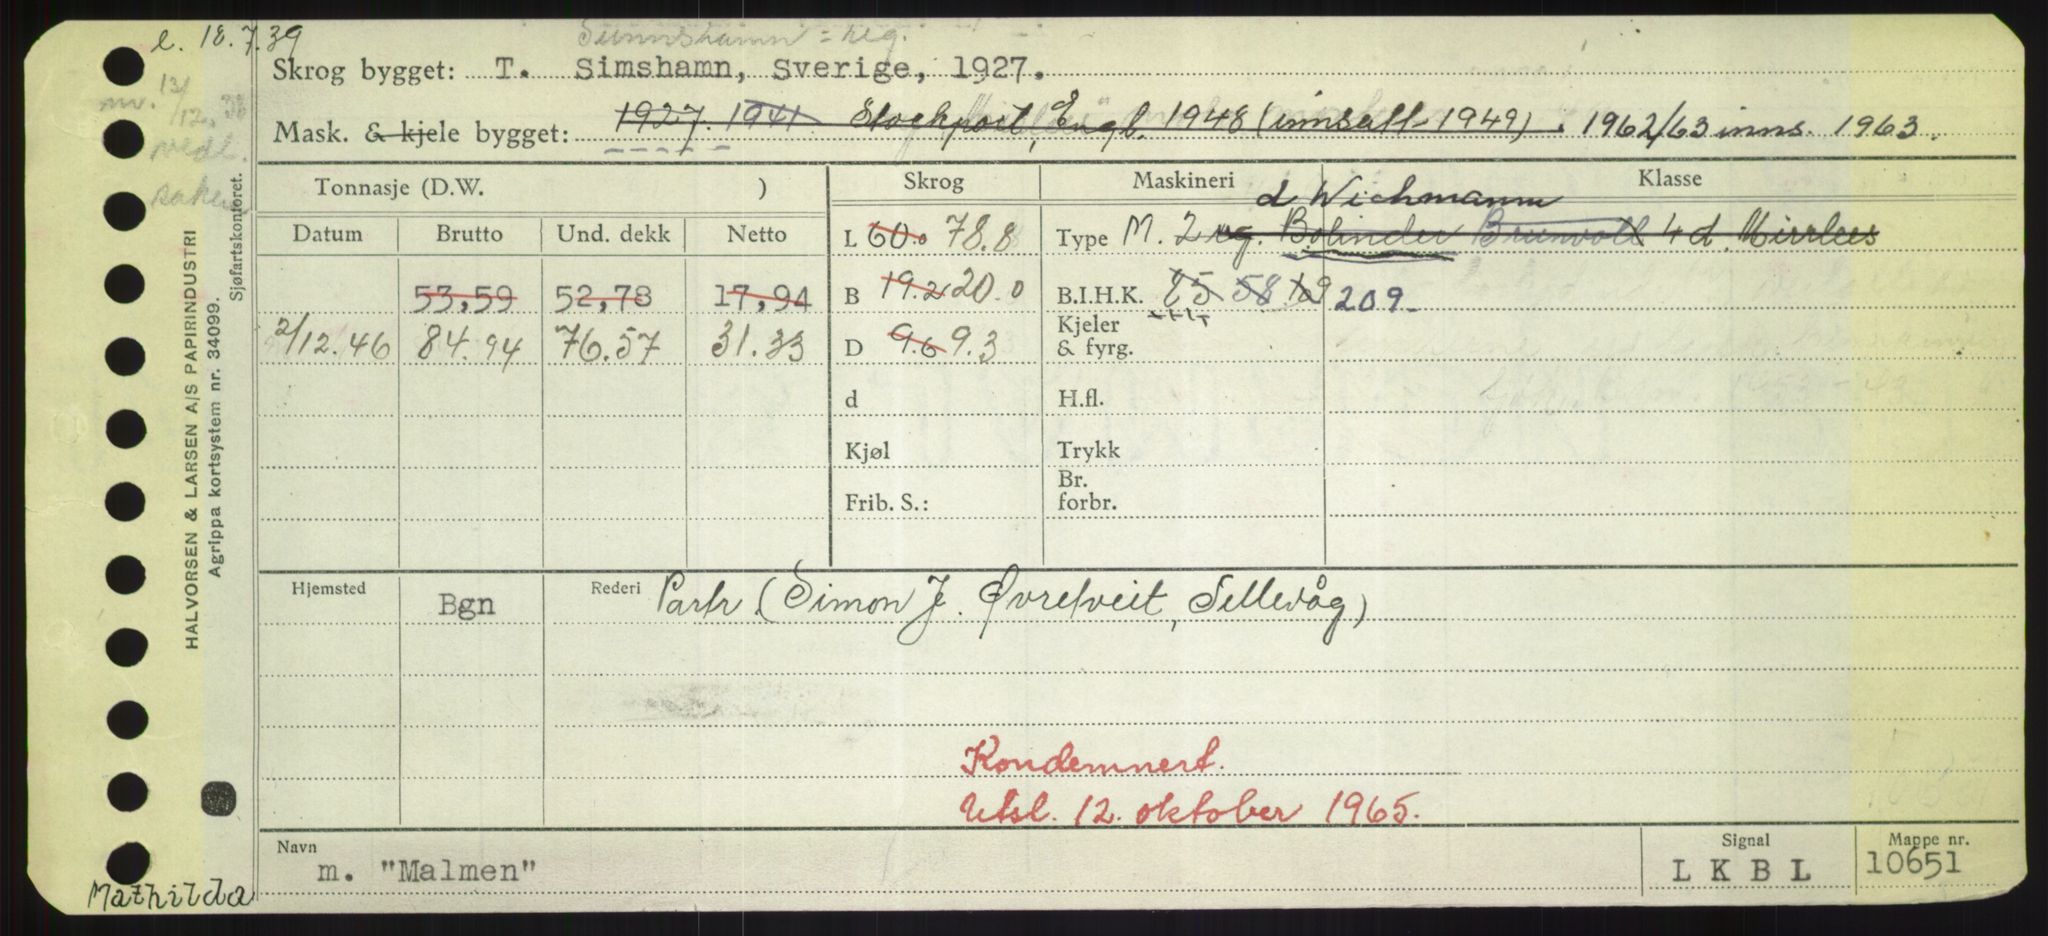 e. 18.7.39
Skrog bygget: T. Simshamn, Sverige, 1927.
Mask. & kjele bygget: 1927. 1941. Stockport, Engl. 1948 (innsatt 1949). 1962/63 inns. 1963.
Tonnasje (D.W. ) Skrog Maskineri Klasse
d Wichmann
Datum Brutto Und. dekk Netto L 60.0 78.8 Type M. 2 vg. Bolinder Brunvoll 4 d. Mirrlees
53,59 52,78 17,94 B 19.2 20.0 B.I.H.K. 85 58 129 209
2/12.46 84.94 76.57 31.33 D 9.6 9.3 Kjeler & fyrg.
d H.fl.
Kjøl Trykk
Frib. S.: Br. forbr.
Hjemsted Bgn Rederi Partr. (Simon J. Øvretveit, Sellevåg)
Kondemnert.
Utsl. 12. oktober 1965.
Navn m. "Malmen" Signal LKBL Mappe nr. 10651
Mathilda
HALVORSEN & LARSEN A/S PAPIRINDUSTRI
Agrippa kortsystem nr. 34099.
Sjøfartskontoret.